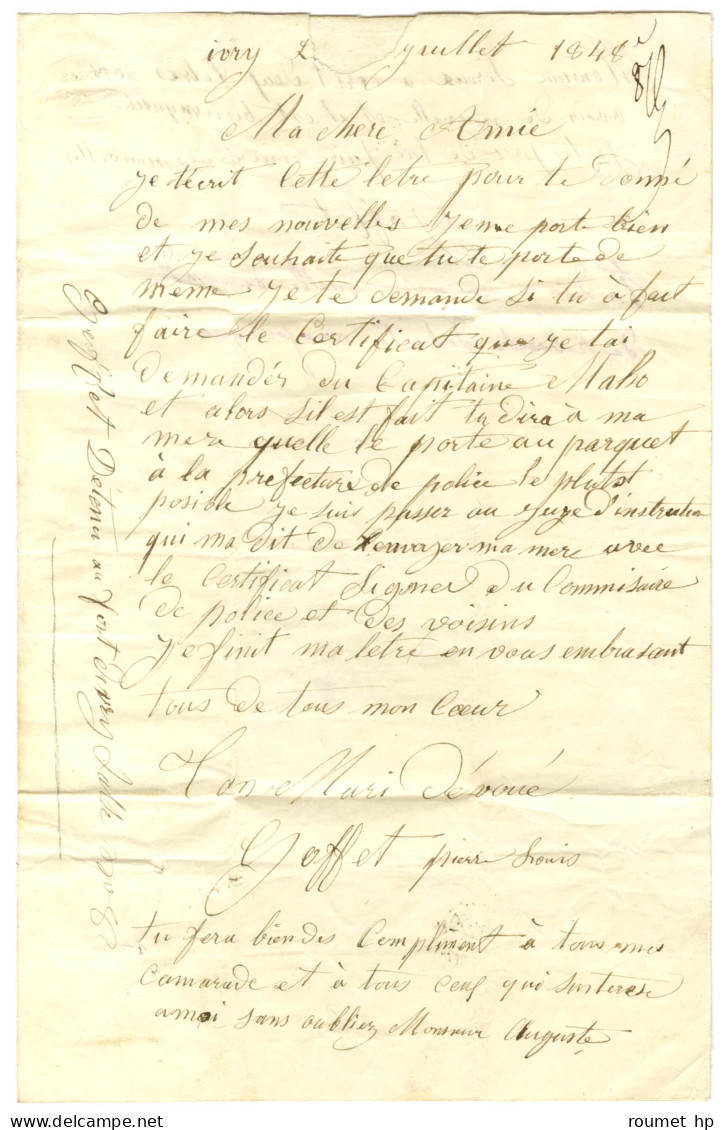 ivry L juillet 1848
Ma chere Amie
je técrit cette letre pour te donné
de mes nouvelles jeme porte bien
et je souhaite que tu te porte de
meme je te demande si tu à fait
faire le Certificat que je tai
demandér du Capitaine Maho
et alors sil est fait tu dira à ma
mere quelle le porte au parquet
à la prefecture de police le plutot
posible je suis passer au juge d'instruction
qui ma dit de lenvoyer ma mere avec
le certificat signer du Commisaire
de police et des voisins
je finit ma letre en vous embrasant
tous de tous mon Cœur
Ton Mari dévoué
Goffet pierre Louis
tu fera bien des Compliment à tous mes
camarade et à tous ceux qui sinterese
amoi sans oublier Monsieur Auguste
Goffet Détenu au fort divry Salle
roumet hp